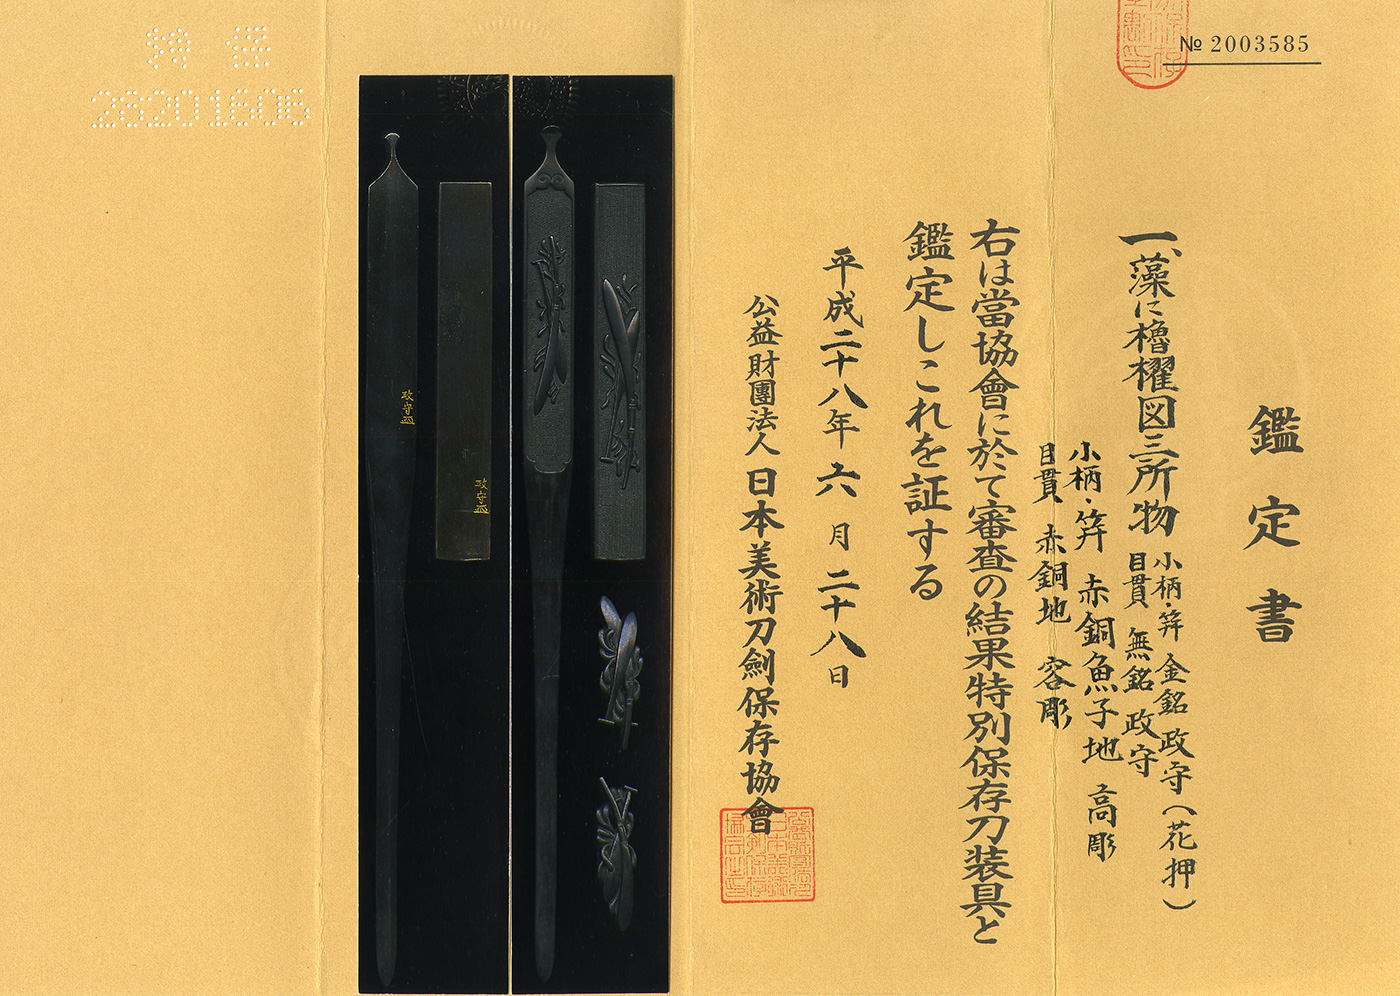 № 2003585
鑑定書
一、藻に櫓櫂図三所物
小柄・笄 金銘 政守（花押）
目貫 無銘 政守
小柄・笄 赤銅魚子地 高彫
目貫 赤銅地 容彫
右は當協會に於て審査の結果特別保存刀装具と
鑑定しこれを証する
平成二十八年六月二十八日
公益財團法人日本美術刀劍保存協會
政守
政守
特保
28201606